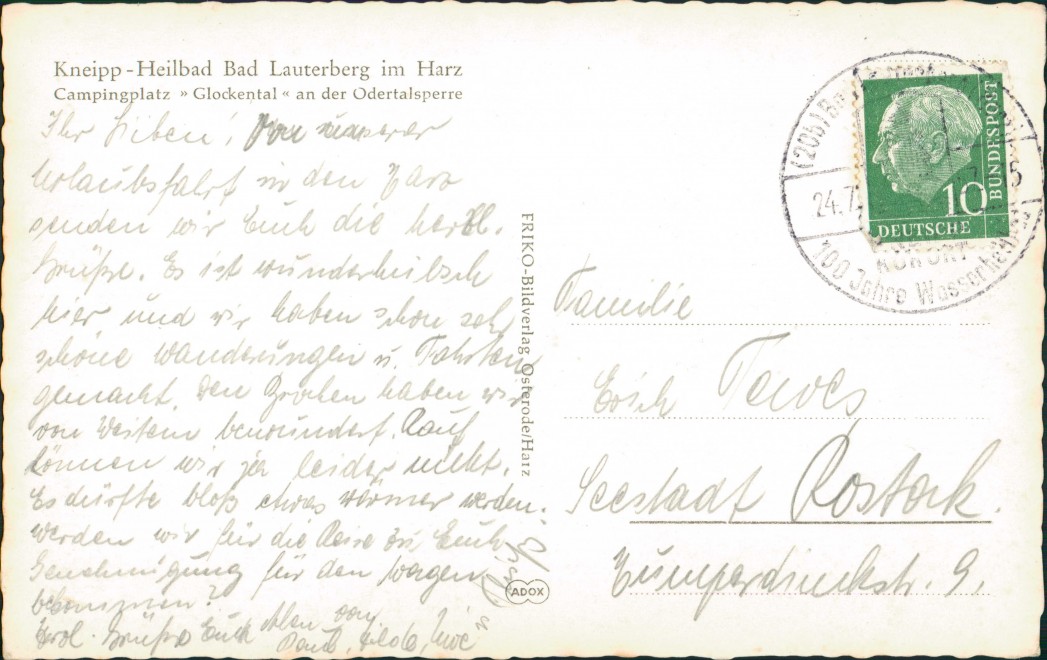 Kneipp-Heilbad Bad Lauterberg im Harz
Campingplatz » Glockental « an der Odertalsperre
Ihr Lieben! Von unserer
Urlaubsfahrt in den Harz
senden wir Euch die herzl.
Grüße. Es ist wunderhübsch
hier, und wir haben schon sehr
schöne Wanderungen u. Fahrten
gemacht. Den Brocken haben wir
von Weitem bewundert. Rauf
können wir ja leider nicht.
Es dürfte bloß etwas wärmer werden.
Werden wir für die Reise zu Euch
Genehmigung für den Wagen
bekommen?
Herzl. Grüße Euch Allen von
Paul, Hilde, Uwe
FRIKO-Bildverlag Osterode/Harz
ADOX
Familie
Erich Tewes
Seestadt Rostock.
Thümperdinkstr. 9.
(20b) Bad
24.7
15
KURORT
100 Jahre Wasserheil
10
DEUTSCHE
BUNDESPOST